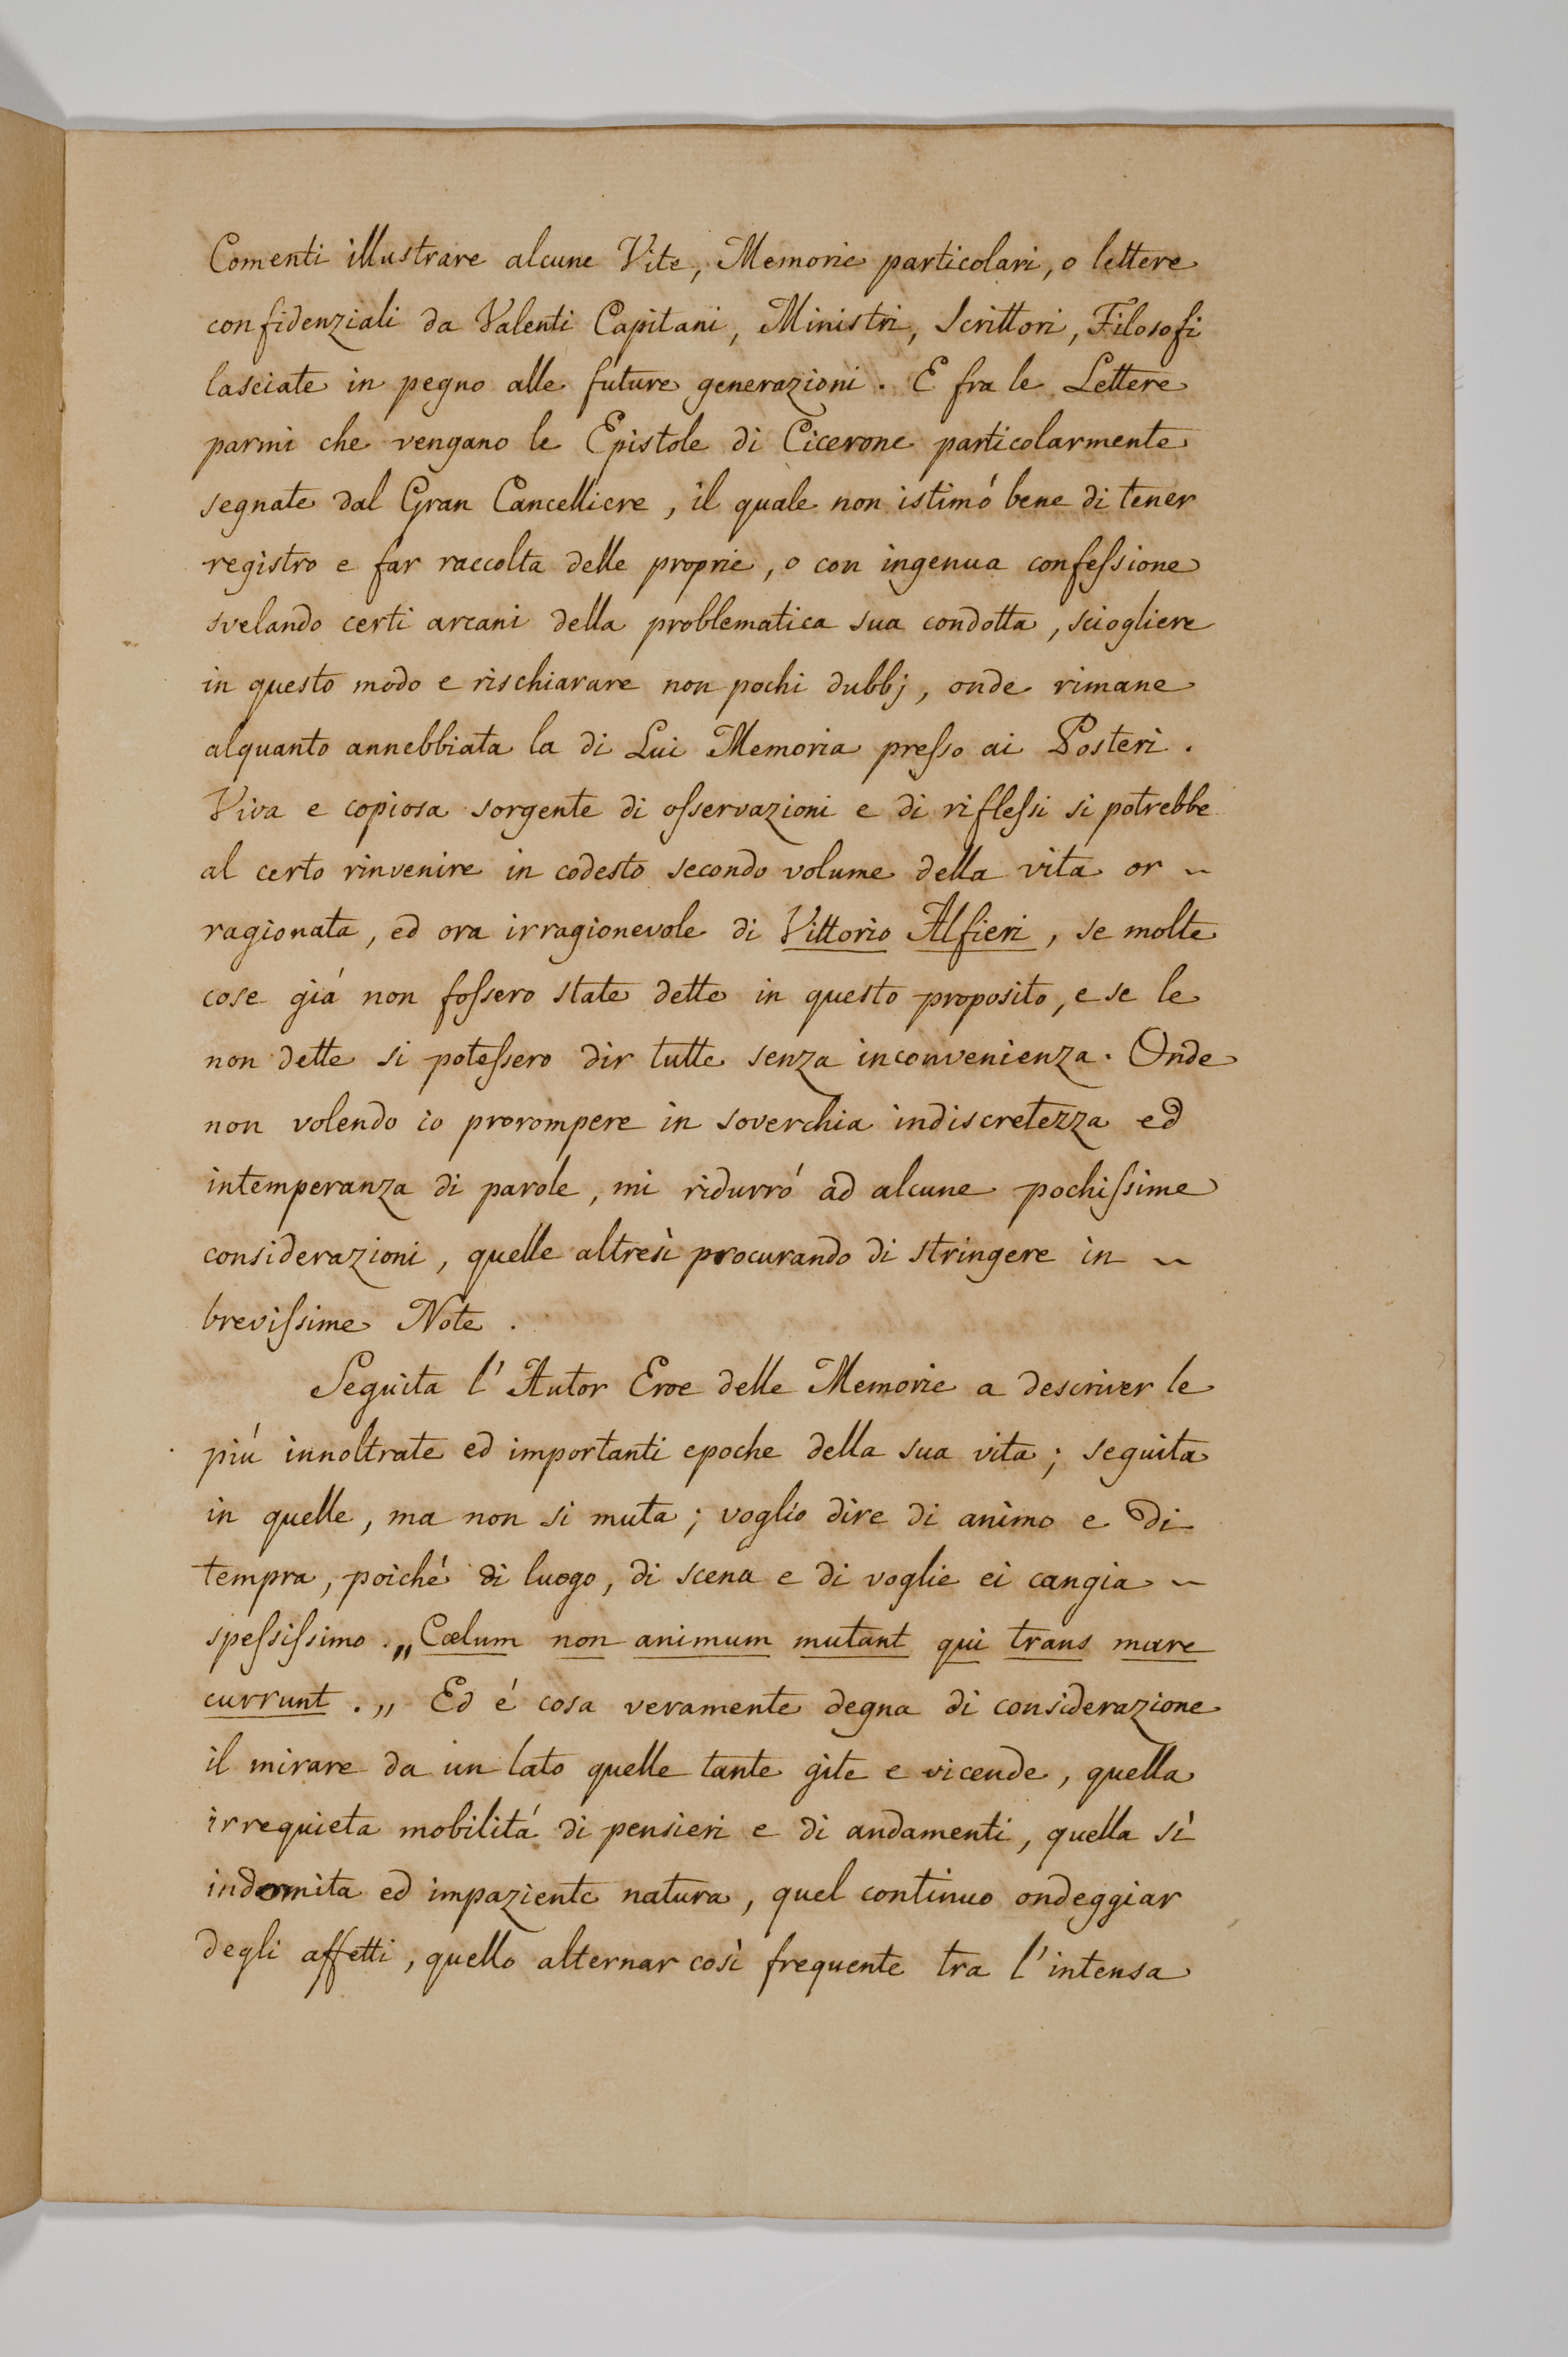 Comenti illustrare alcune Vite, Memorie particolari, o lettere
confidenziali da Valenti Capitani, Ministri, Scrittori, Filosofi
lasciate in pegno alle future generazioni. E fra le Lettere
parmi che vengano le Epistole di Cicerone particolarmente
segnate dal Gran Cancelliere, il quale non istimó bene di tener
registro e far raccolta delle proprie, o con ingenua confeſsione
svelando certi arcani della problematica sua condotta, sciogliere
in questo modo e rischiarare non pochi dubbj, onde rimane
alquanto annebbiata la di Lui Memoria preſso ai Posteri.
Viva e copiosa sorgente di oſservazioni e di rifleſsi si potrebbe
al certo rinvenire in codesto secondo volume della vita or ~
ragionata, ed ora irragionevole di Vittorio Alfieri, se molte
cose giá non foſsero state dette in questo proposito, e se le
non dette si poteſsero dir tutte senza inconvenienza. Onde
non volendo io prorompere in soverchia indiscretezza ed
intemperanza di parole, mi ridurró ad alcune pochiſsime
considerazioni, quelle altresì procurando di stringere in ~
breviſsime Note.
Seguita l'Autor Eroe delle Memorie a descriver le
piú innoltrate ed importanti epoche della sua vita; seguita
in quelle, ma non si muta; voglio dire di animo e di
tempra, poiché di luogo, di scena e di voglie ei cangia ~
speſsiſsimo. „Cœlum non animum mutant qui trans mare
currunt.„ Ed é cosa veramente degna di considerazione
il mirare da un lato quelle tante gite e vicende, quella
irrequieta mobilitá di pensieri e di andamenti, quella sì
indomita ed impaziente natura, quel continuo ondeggiar
degli affetti, quello alternar così frequente tra l'intensa